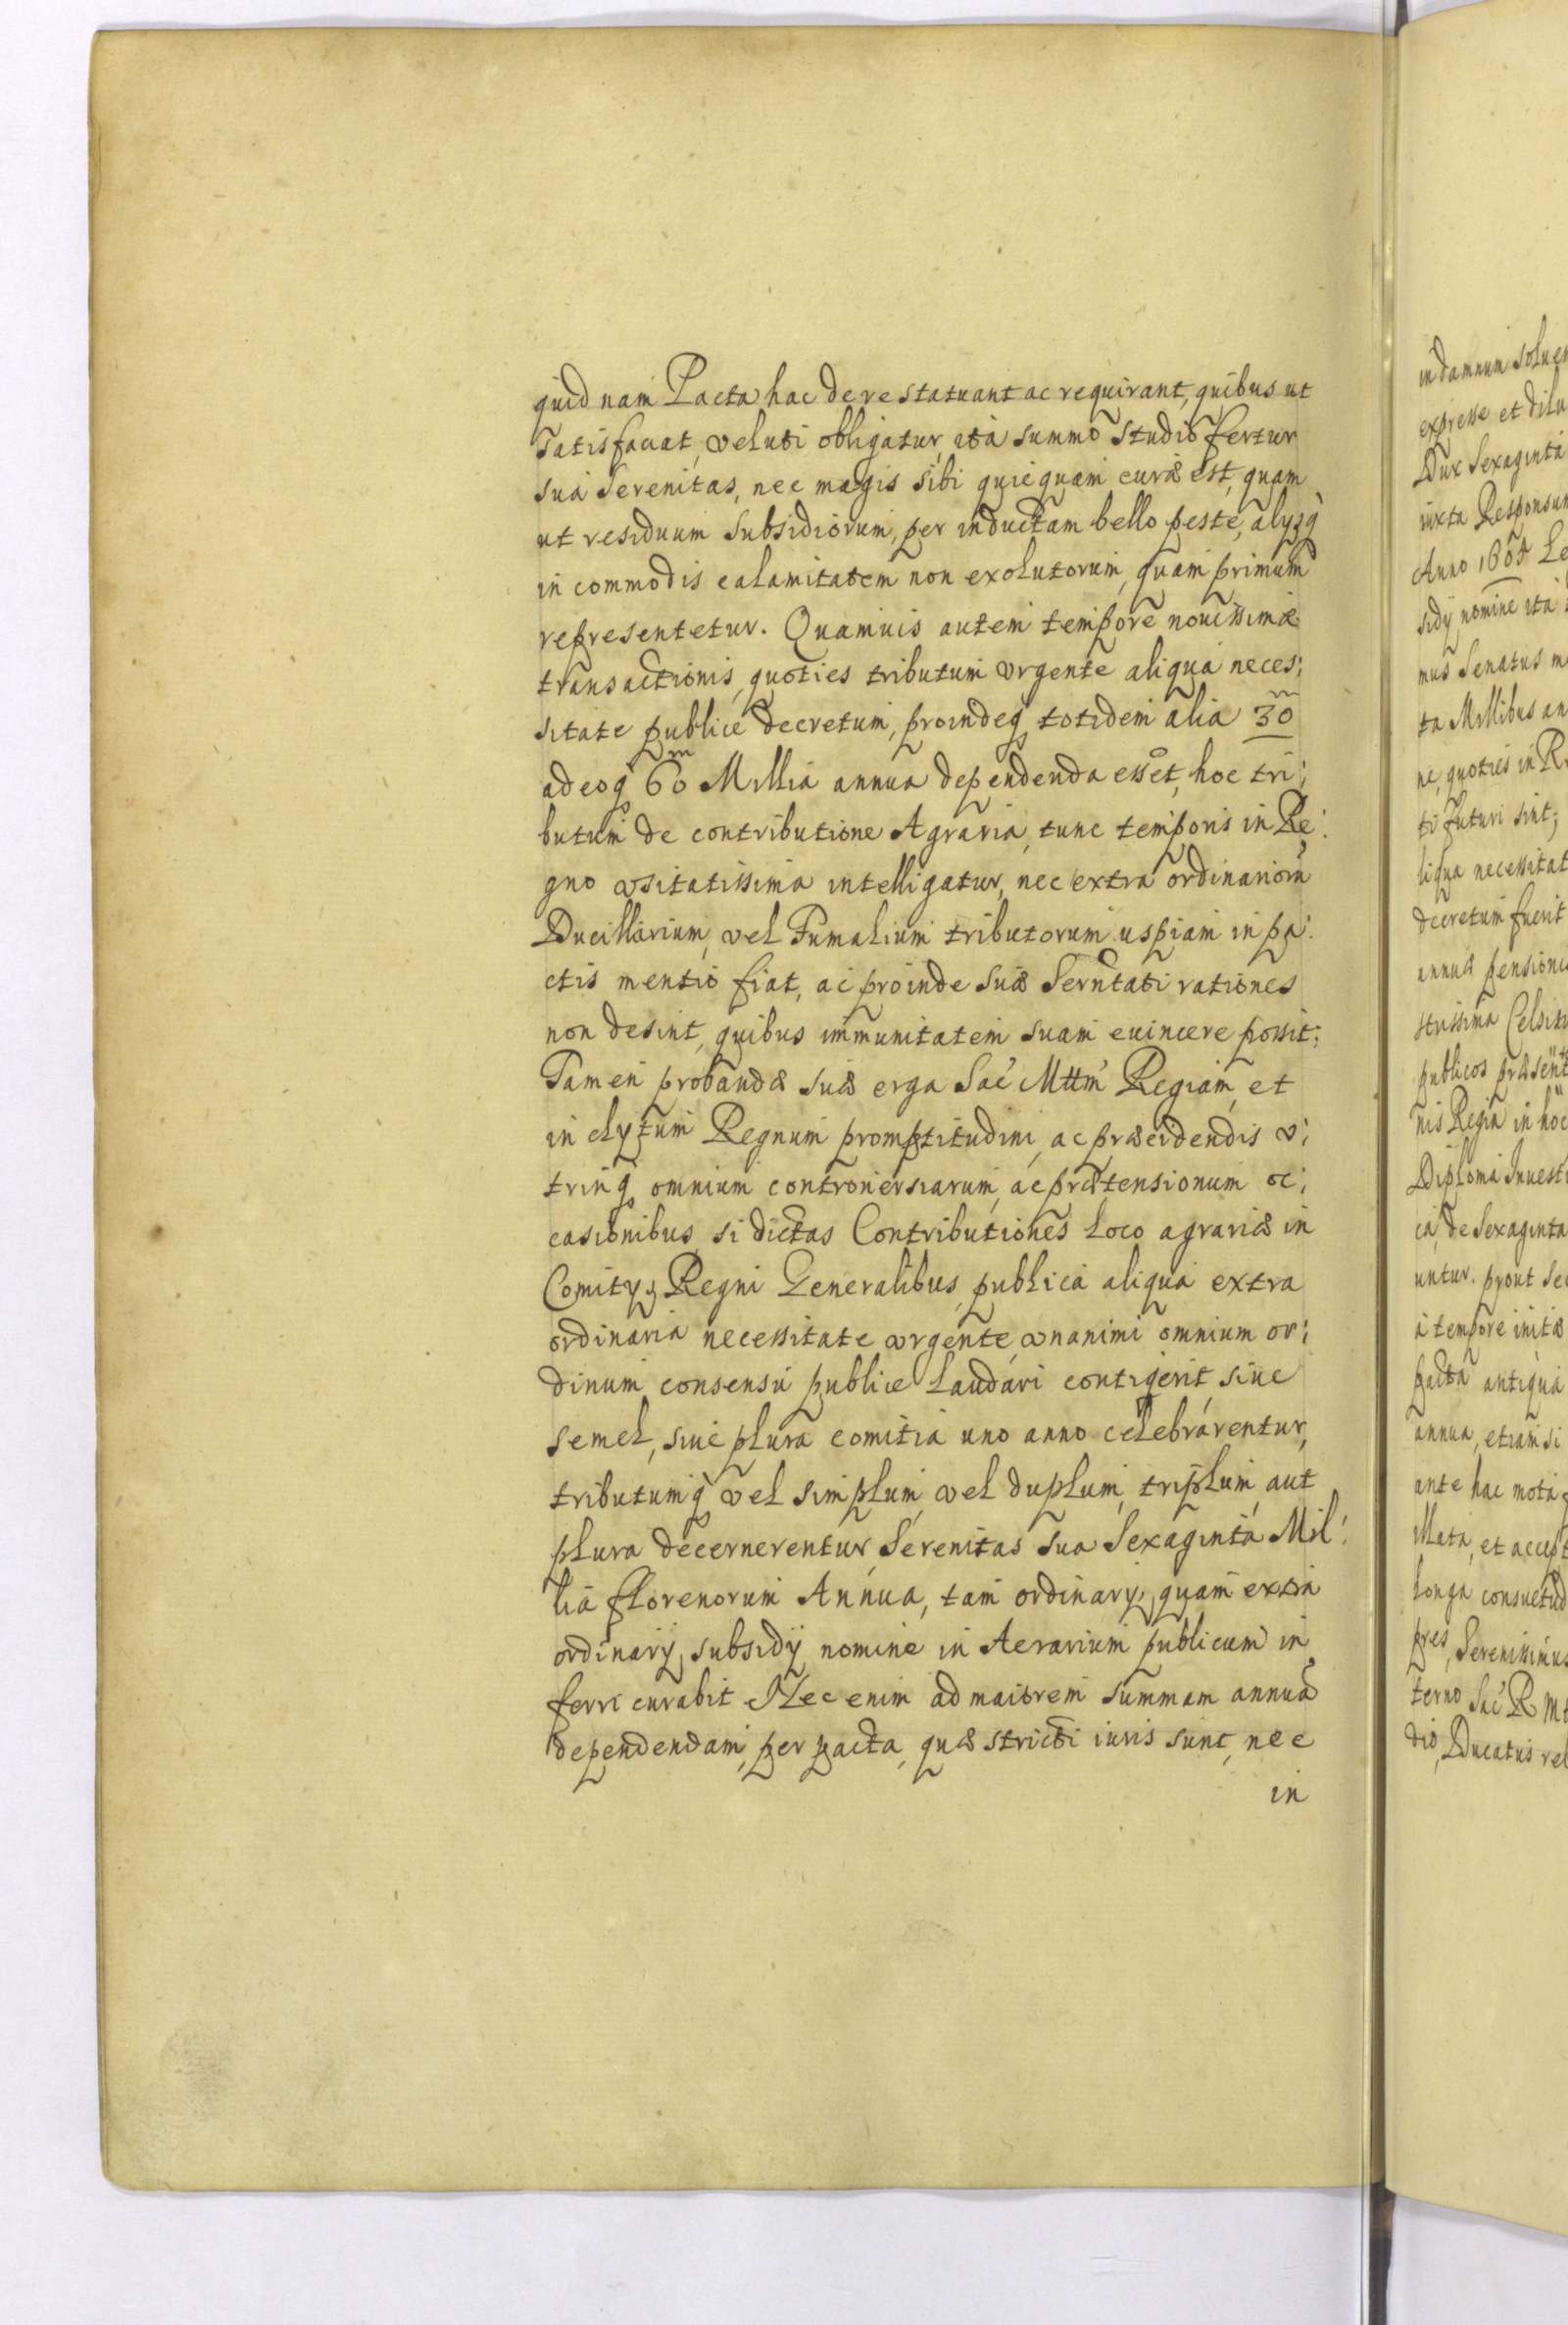 quid nam Pacta hac de re statuant ac requirant, quibus ut
satisfaciat, veluti obligatur, ità summo studio fertur
sua Serenitas, nec magis sibi quicquam curæ est, quam
ut residuum subsidiorum, per inductam bello peste, alysq̀
in commodis calamitatem non exolutorum, quam primum
representetur. Quamuis autem tempore nouissimæ
transactionis, quoties tributum vrgente aliqua neces:
sitate publicè decretum, proindeq totidem alia 30 m
adeoq 60 m Millia annua dependenda esset, hoc tri:
butum de contributione Agraria, tunc temporis in Re:
gno vsitatissima intelligatur, nec extra ordinariorū
Ducillarium, vel Fumalium tributorum uspiam in pa:
ctis mentio fiat, ac proinde suæ Serntati rationes
non desint, quibus immunitatem suam euincere possit:
Tamen probandæ suæ erga Sac Mttm Regiam, et
in clytum Regnum promptitudini, ac præcidendis v:
trinq omnium controuersiarum, ac prætensionum oc:
casionibus, si dictas Contributiones loco agrariæ in
Comitys Regni Generalibus, publica aliqua extra
ordinaria necessitate vrgente, vnanimi omnium or:
dinum consensu publice laudari contigerit, siue
semel, siue plura comitia uno anno celebrarentur,
tributumq̀ vel simplum, vel duplum, triplum, aut
plura decernerentur, Serenitas sua Sexaginta Mil:
lia florenorum Annua, tam ordinarij, quam extra
ordinarij, subsidij nomine in Aerarium publicum in
ferri curabit. Nec enim ad maiorem summam annuā
dependendam, per pacta, quæ stricti iuris sunt, nec
in
in damnum solue
expresse et dilu
Dux Sexaginta
iuxta Responsum
Anno Le
sidij nomine ita
mus Senatus m
ta Millibus an
ne, quoties in R
ti futuri sint;
liqua necessitat
decretum fuerit
annuæ pensioni
strissima Celsitu
publicos præsent
nis Regia in hoc
Diploma Inuesti
ca, de Sexaginta
untur. prout se
à tempore initæ
pacta antiqua
annua, etiam si
ante hac mota
llata, et accept
longa consuetud
pres, Serenissimus
terno Sac R Mt
dio, Ducatus rel